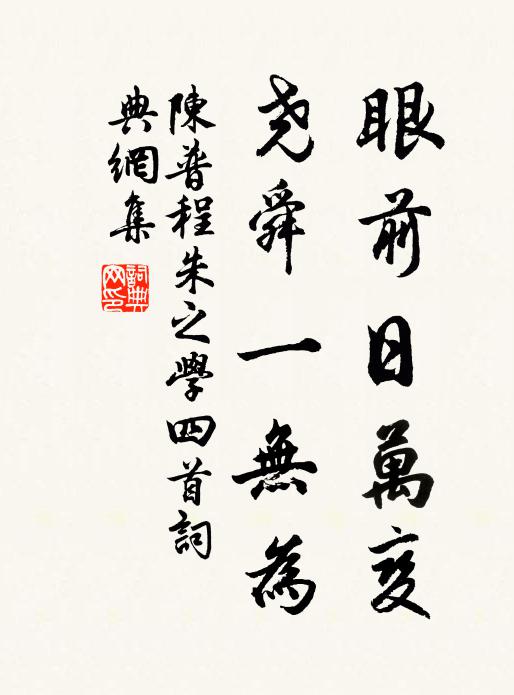 眼前日萬变
尧舜一無為
陳普程朱之學四首詞
典網集
詞典網印